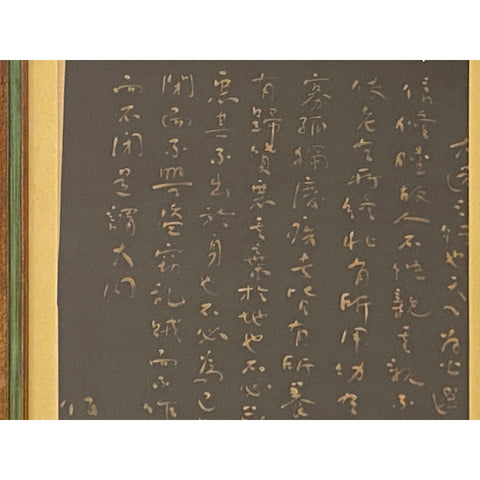 大道之行也天下為公選
信修睦故人不獨親其親不
使老有所終壯有所用幼有
寡孤獨廢疾者皆有所養
有歸貨惡其棄於地也不必
惡其不出於身也不必為己
閉而不興盜竊亂賊而不作
而不閉是謂大同